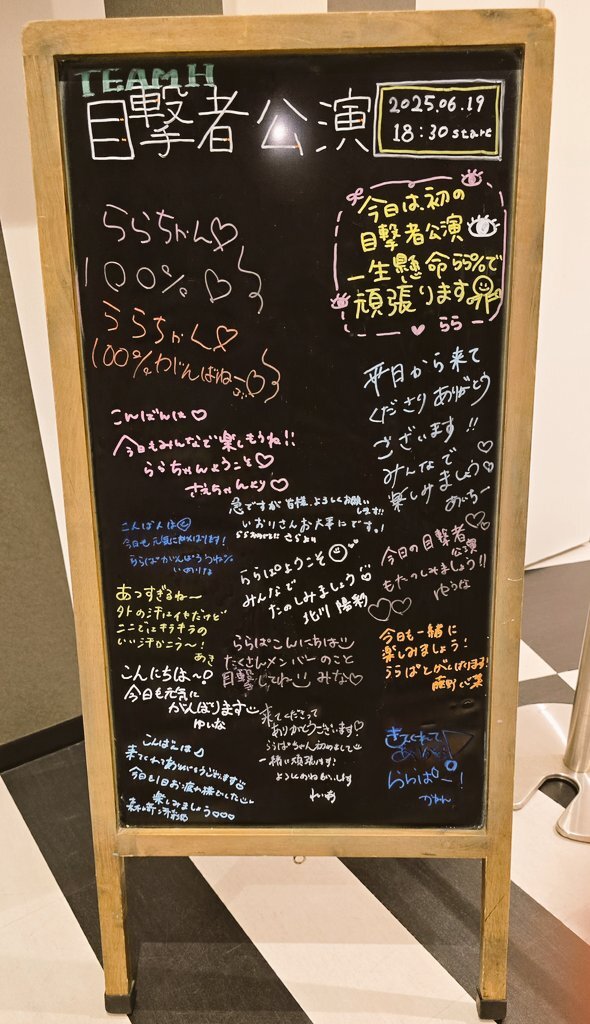 TEAM H
目撃者公演
2025.06.19
18:30 start
今日は、初の
目撃者公演
一生懸命ら%で
頑張ります
らら
ららちゃん♡
100%♡
ららちゃん♡
100%
平日から来て
くださりありがとう
ございます!!
みんなで
楽しみましょう♡
あいちー
こんばんは♡
今日もみんなで楽しもうね!!
ららちゃんようこそ♡
さえちゃんより♡
急ですが皆様、よろしくお願い
します!!
いおりさんお大事にです。!
さらより
こんばんは
今日も元気に
いのりな
ららぱようこそ
みんなで
たのしみましょう♡
北川 陽彩
今日の目撃者
公演
もたのしみましょう!!
ゆうな
あっすぎるね〜
外の汗はイヤだけど
ここではキラキラの
いい汗かこう〜!
あき
ららぱこんにちは
たくさんメンバーのこと
目撃してね みな♡
今日も一緒に
楽しみましょう!
ららぱとがんばります!
こんにちは〜?
今日も元気に
がんばります
ゆいな
来てくださって
ありがとうございます♡
ららぱちゃん初めまして
一緒に頑張ります!
よろしくおねがいします
きてくれて
ありがと!
ららぱ〜!
こんばんは♪
来てくれてありがとうございます
今日も1日お疲れ様でした
楽しみましょう○○○